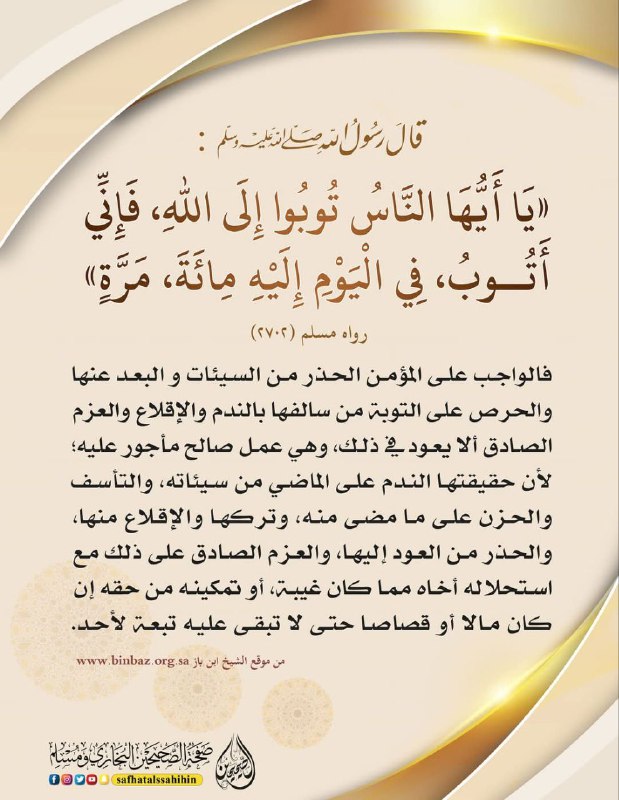 قَالَ رَسُولُ اللّٰهِ صَلَّى اللّٰهُ عَلَيْهِ وَسَلَّمَ :
«يَا أَيُّهَا النَّاسُ تُوبُوا إِلَى اللهِ، فَإِنِّي
أَتُــوبُ، فِي الْيَوْمِ إِلَيْهِ مِائَةَ، مَرَّةٍ»
رواه مسلم (٢٧٠٢)
فالواجب على المؤمن الحذر من السيئات و البعد عنها
والحرص على التوبة من سالفها بالندم والإقلاع والعزم
الصادق ألا يعود في ذلك، وهي عمل صالح مأجور عليه؛
لأن حقيقتها الندم على الماضي من سيئاته، والتأسف
والحزن على ما مضى منه، وتركها والإقلاع منها،
والحذر من العود إليها، والعزم الصادق على ذلك مع
استحلاله أخاه مما كان غيبة، أو تمكينه من حقه إن
كان مالا أو قصاصا حتى لا تبقى عليه تبعة لأحد.
من موقع الشيخ ابن باز www.binbaz.org.sa
صفحة الصحيحين البخاري ومسلم
safhatalssahihin